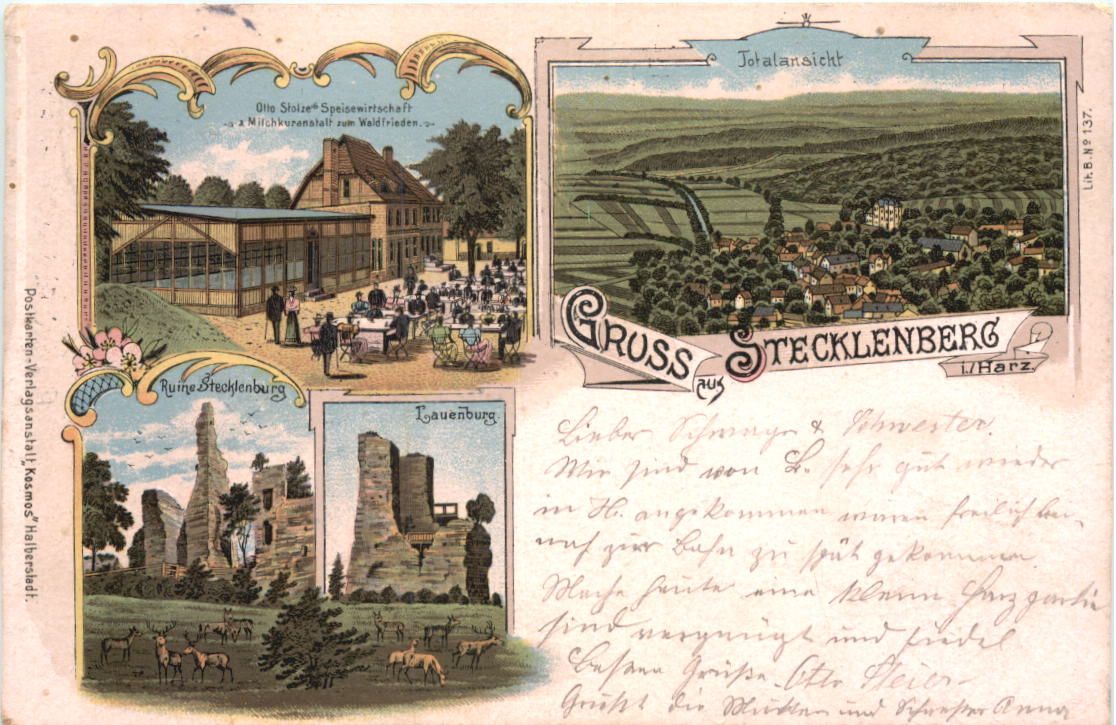 Otto Stolze's Speisewirtschaft
& Milchkuranstalt zum Waldfrieden.
Totalansicht
Lit. B. Nº 137.
GRUSS
aus
STECKLENBERG
i./HARZ.
Ruine Stecklenburg
Lauenburg.
Postkarten-Verlagsanstalt "Kosmos" Halberstadt.
Lieber Schwager & Schwester.
Wir sind von L. sehr gut wieder
in H. angekommen waren freilich bei-
nah zur Bahn zu spät gekommen
Mache heute eine kleine Harzpartie
sind vergnügt und fiedel
Besten Grüße Otto
Grüßt die Mutter und Schwester Anna